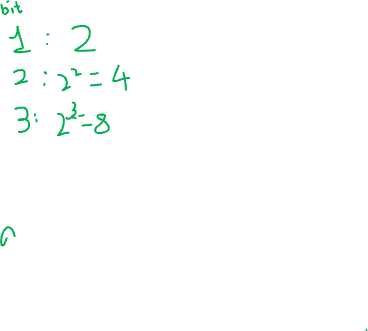 bit
1 : 2
2 : 2² = 4
3 : 2³ = 8